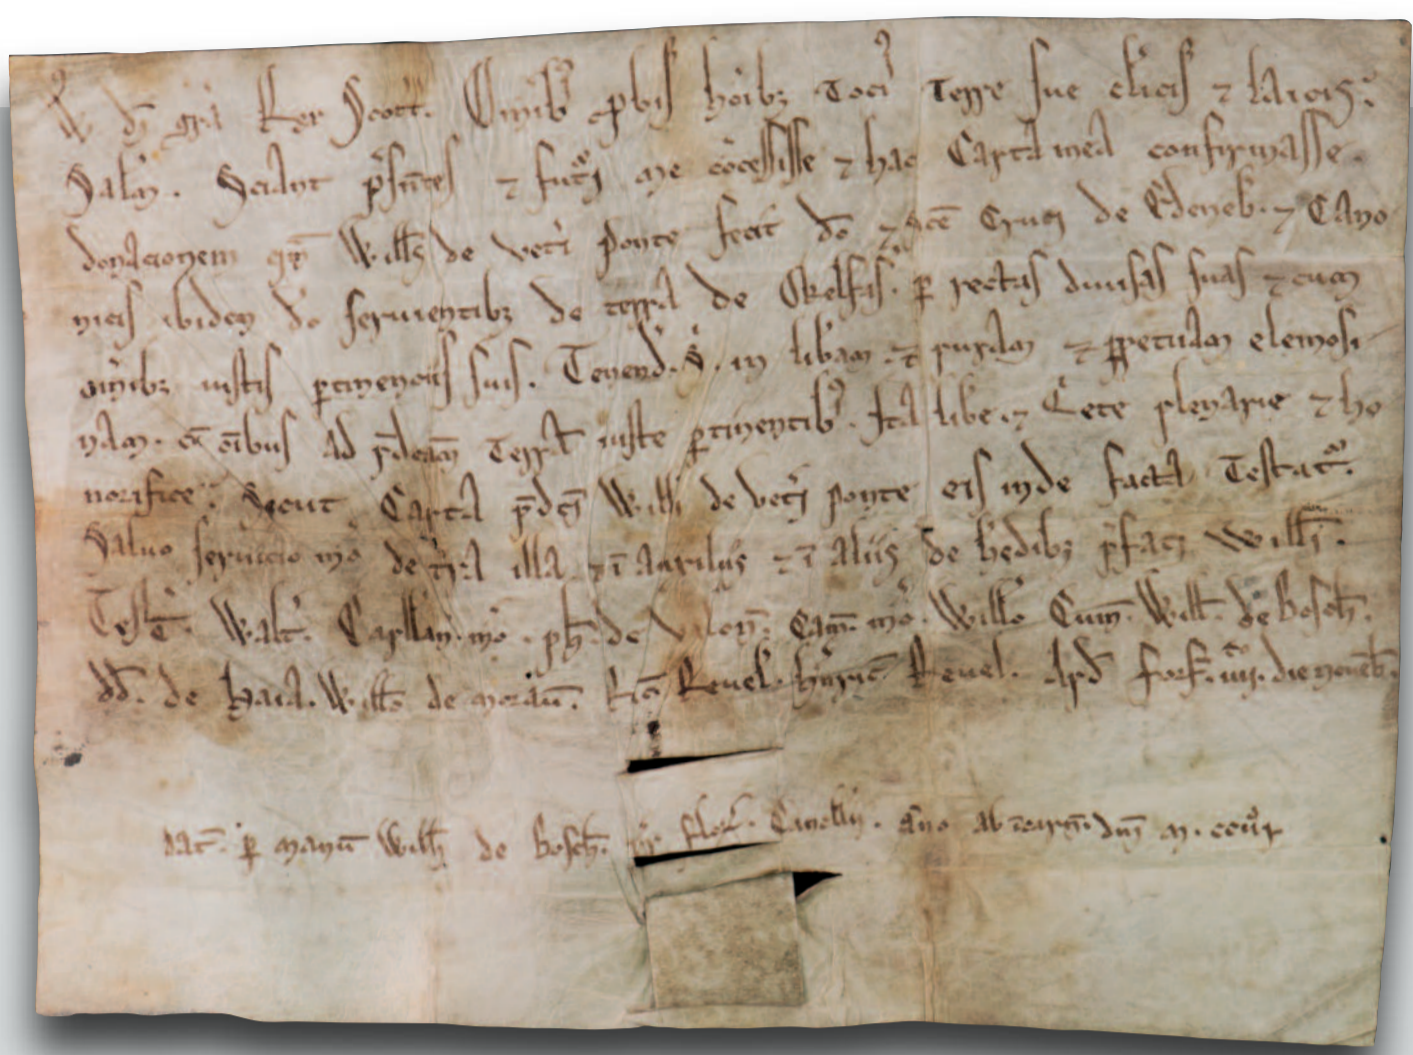 W. dī grā Rex Scott. Omībȝ pbis hōibȝ Toci' Terre sue clicis ⁊ laicis.
Salm̄. Sciant p̄sentes ⁊ fut'i me ɔcessisse ⁊ hac Carta mea confirmasse
donacionem qm̄ Willƚs de vet'i ponte fecit dō ⁊ sc̄e Cruci de Edeneb. ⁊ Cano
nicis ibidem dō seruientibȝ de terra de Okelfas. p rectas diuisas suas ⁊ cum
omībȝ iustis ptinenciis suis. Tenend. in libam ⁊ puram ⁊ ppetuam elemosi
nam. cū oībus ad p̄dcām Terrā iuste ptinentibȝ. Ita libe ⁊ Q'ete plenarie ⁊ ho
norifice. Sicut Carta p̄dcī Willi de vet'i ponte eis inde facta Testat'.
Saluo seruicio mō de t'ra illa ⁊ ī auxiliis ⁊ ī aliis de hedibȝ p̄fati Willƚi.
Test. Walt. Capellan. mō. ph. de Valoñ. Cam̄. mō. Willo Cum̄. Will. de Bosch.
dd. de Haia. Willo de morau. Ric Reuel. henric Reuel. Apd forf. iiij. die nouēb.
dat. p manū Willƚi de bosch. Cancellarii. Anno ab incarn. dnī m. cc